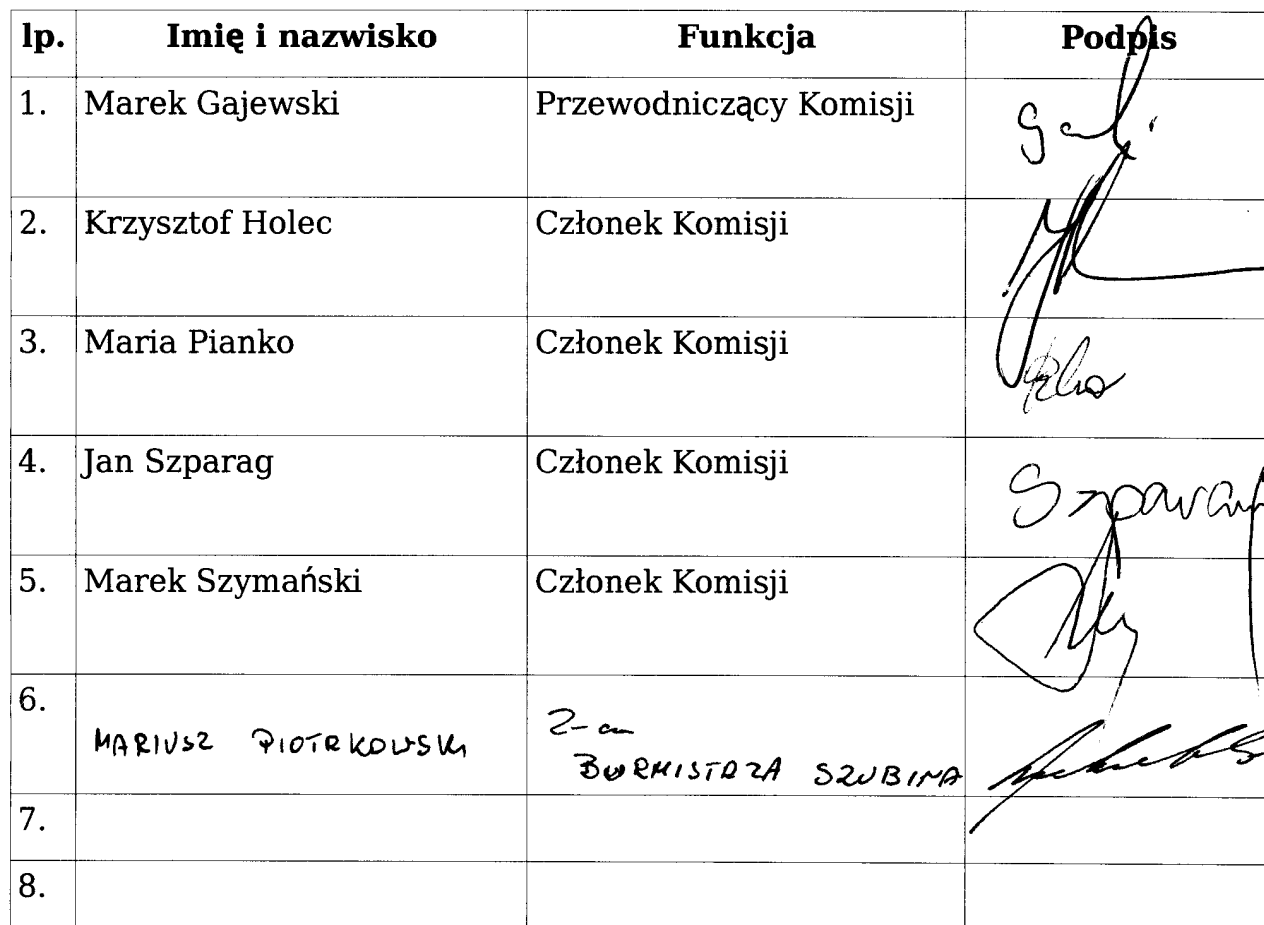 lp. Imię i nazwisko Funkcja Podpis
1. Marek Gajewski Przewodniczący Komisji
2. Krzysztof Holec Członek Komisji
3. Maria Pianko Członek Komisji
4. Jan Szparag Członek Komisji Szparag
5. Marek Szymański Członek Komisji
6.
Z-ca
MARIUSZ PIOTRKOWSKI BURMISTRZA SZUBINA
7.
8.